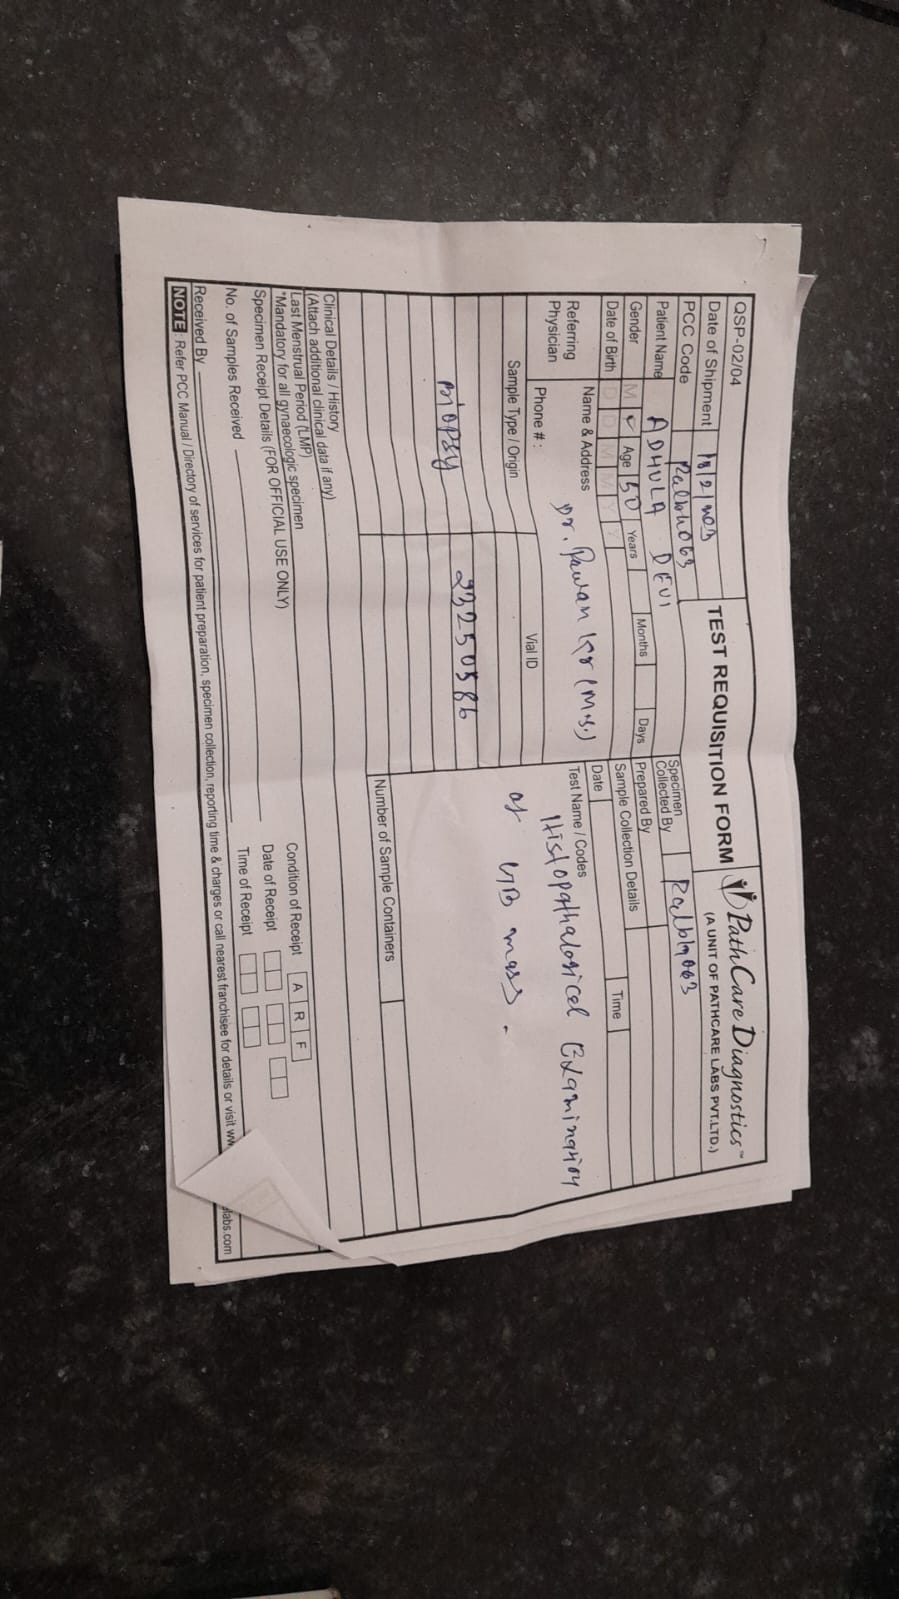 QSP-02/04
TEST REQUISITION FORM
PathCare Diagnostics™
(A UNIT OF PATHCARE LABS PVT.LTD.)
Date of Shipment 18/2/
PCC Code
Patient Name ADHULA DEVI
Specimen Collected By
Gender M Age 50 Years Months Days
Prepared By
Date of Birth D D M M Y Y
Sample Collection Details
Date Time
Referring Physician
Name & Address Dr. Pawan Kr (M.S.)
Phone # :
Test Name / Codes
Histopathalogical Examination
of GB mass.
Sample Type / Origin Vial ID
Biopsy 23250586
Number of Sample Containers
Clinical Details / History
(Attach additional clinical data if any)
Last Menstrual Period (LMP)
*Mandatory for all gynaecologic specimen
Specimen Receipt Details (FOR OFFICIAL USE ONLY)
Condition of Receipt A R F
No. of Samples Received
Date of Receipt
Received By
Time of Receipt
NOTE : Refer PCC Manual / Directory of services for patient preparation, specimen collection, reporting time & charges or call nearest franchisee for details or visit labs.com